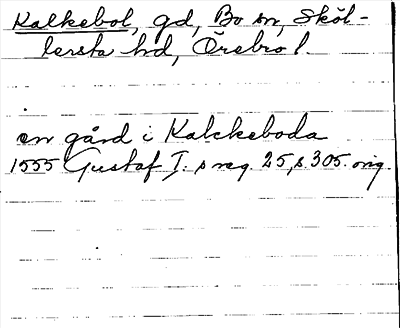 Kalkebol, gd, Bo sn, Sköl-
lersta hd, Örebro l.
en gård i Kalckeboda
1555 Gustaf I. s reg. 25, s. 305. orig.